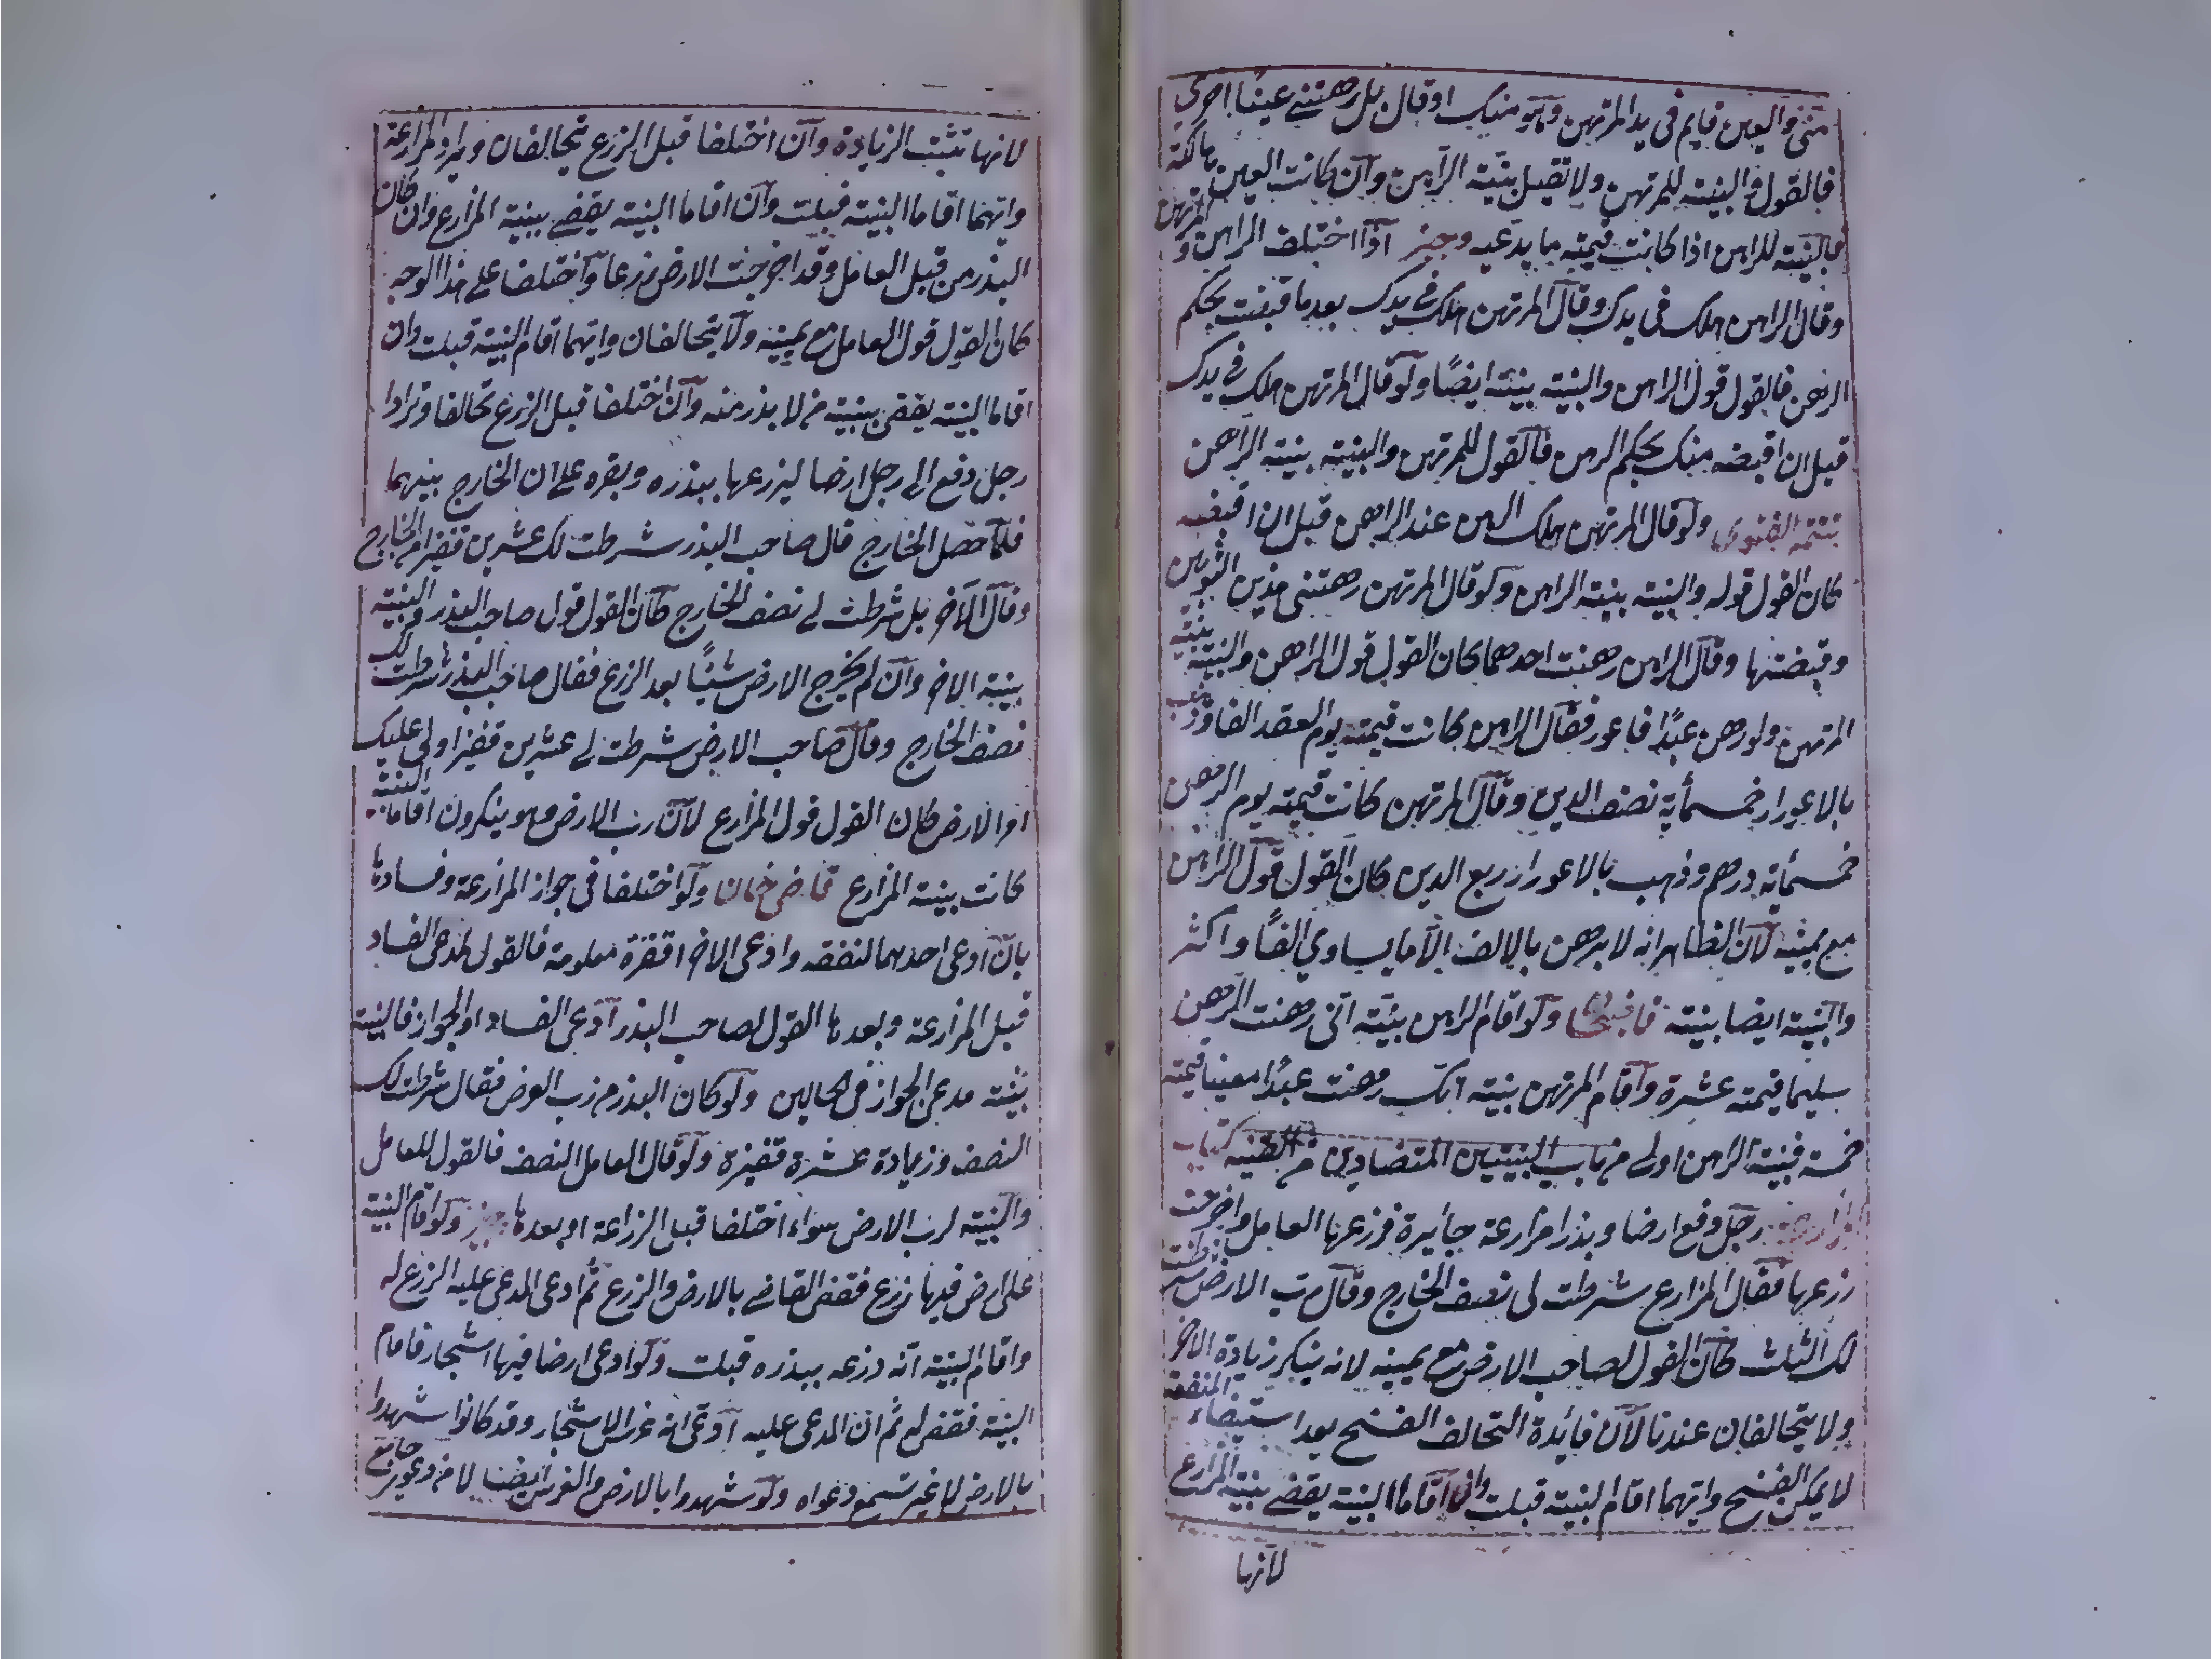 مني والعين قايم في يد المرتهن وهو منيك او قال بل رهنتني عينا اخرى
فالقول والبينة للمرتهن ولا تقبل بينة الراهن وان كانت العين هالكة
فالبينة للراهن اذا كانت قيمته ما يدعيه وجيز اذا اختلف الراهن والمرتهن
وقال الراهن هلك في يدك وقال المرتهن هلك في يدك بعد ما قبضت بحكم
الرهن فالقول قول الراهن والبينة بينته ايضا ولو قال المرتهن هلك في يدك
قبل ان اقبضه منك بحكم الرهن فالقول للمرتهن والبينة بينة الراهن
تتمة الفتوى ولو قال المرتهن هلك الرهن عند الراهن قبل ان اقبضه
كان القول قوله والبينة بينة الراهن ولو قال المرتهن رهنتني هذين الثوبين
وقبضتها وقال الراهن رهنت احدهما كان القول قول الراهن والبينة بينة
المرتهن ولو رهن عبدا فاعور فقال الراهن كانت قيمته يوم العقد الفا وذهب
بالاعورار خمسمأية نصف الدين وقال المرتهن كانت قيمته يوم الرهن
خمسمأية درهم وذهب بالاعورار ربع الدين كان القول قول الراهن
مع يمينه لان الظاهر انه لا يرهن بالالف الا ما يساوي الفا واكثر
والبينة ايضا بينته ولو اقام الراهن بينة اني رهنت الرهن
سليما قيمته عشرة واقام المرتهن بينة انك رهنت عبدا معيبا قيمته
خمسة فبينة الراهن اولى من باب البينتين المتضادين من القنية كتاب
المزارعة رجل دفع ارضا وبذرا مزارعة جأيزة فزرعها العامل واخرجت
زرعها فقال المزارع شرطت لي نصف الخارج وقال رب الارض شرطت
لك الثلث كان القول لصاحب الارض مع يمينه لانه ينكر زيادة الاجر
ولا يتحالفان عندنا لان فأيدة التحالف الفسخ بعد استيفاء المنفعة
لا يمكن الفسخ وايهما اقام البينة قبلت وان اقاما البينة يقضى بينة المزارع
لانها
لانها تثبت الزيادة وان اختلفا قبل الزرع تحالفان ويرد المزارعة
وايهما اقاما البينة قبلت وان اقاما البينة يقضى ببينة المزارع وان كان
البذر من قبل العامل وقد اخرجت الارض زرعا واختلفا على هذا الوجه
كان القول قول العامل مع يمينه ولا يتحالفان وايهما اقام البينة قبلت وان
اقاما البينة يقضى ببينة من لا بذر منه وان اختلفا قبل الزرع تحالفا وترادا
رجل دفع الى رجل ارضا ليزرعها ببذره وبقره على ان الخارج بينهما
فلما حصل الخارج قال صاحب البذر شرطت لك عشرين قفيزا من الخارج
وقال الاخر بل شرطت لي نصف الخارج كان القول قول صاحب البذر والبينة
بينة الاخر وان لم يخرج الارض شيئا بعد الزرع فقال صاحب البذر شرطت لك
نصف الخارج وقال صاحب الارض شرطت لي عشرين قفيزا ولي عليك
اجر الارض كان القول قول المزارع لان رب الارض وهو ينكر وان اقاما البينة
كانت بينة المزارع قاضي خان ولو اختلفا في جواز المزارعة وفسادها
بان ادعى احدهما لنفقه وادعى الاخر اقفزة معلومة فالقول لمدعى الفساد
قبل المزارعة وبعدها القول لصاحب البذر ادعى الفساد او الجواز فالبينة
بينة مدعي الجواز في الحالين ولو كان البذر من رب العوض فقال شرطت لك
النصف وزيادة عشرة قفيزة ولو قال العامل النصف فالقول للعامل
والبينة لرب الارض سواء اختلفا قبل الزراعة او بعدها وجيز ولو اقام البينة
على ارض فيها زرع فقضى القاضي بالارض والزرع ثم ادعى المدعى عليه الزرع له
واقام البينة انه زرعه ببذره قبلت ولو ادعى ارضا فيها اشجار فاقام
البينة فقضى له ثم ان المدعى عليه ادعى انه غرس الاشجار وقد كانوا شهدوا
بالارض لا غير تسمع دعواه ولو شهدوا بالارض والغرس ايضا لا من دعوى جامع